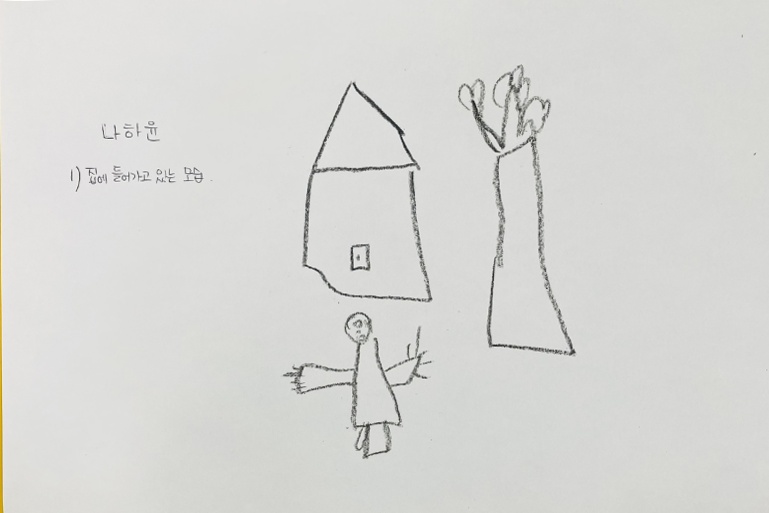 나하윤
1) 집에 들어가고 있는 모습.